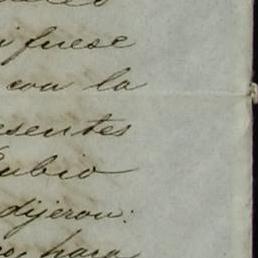 i fuese
con la
esentes
Rubio
dijeron:
para